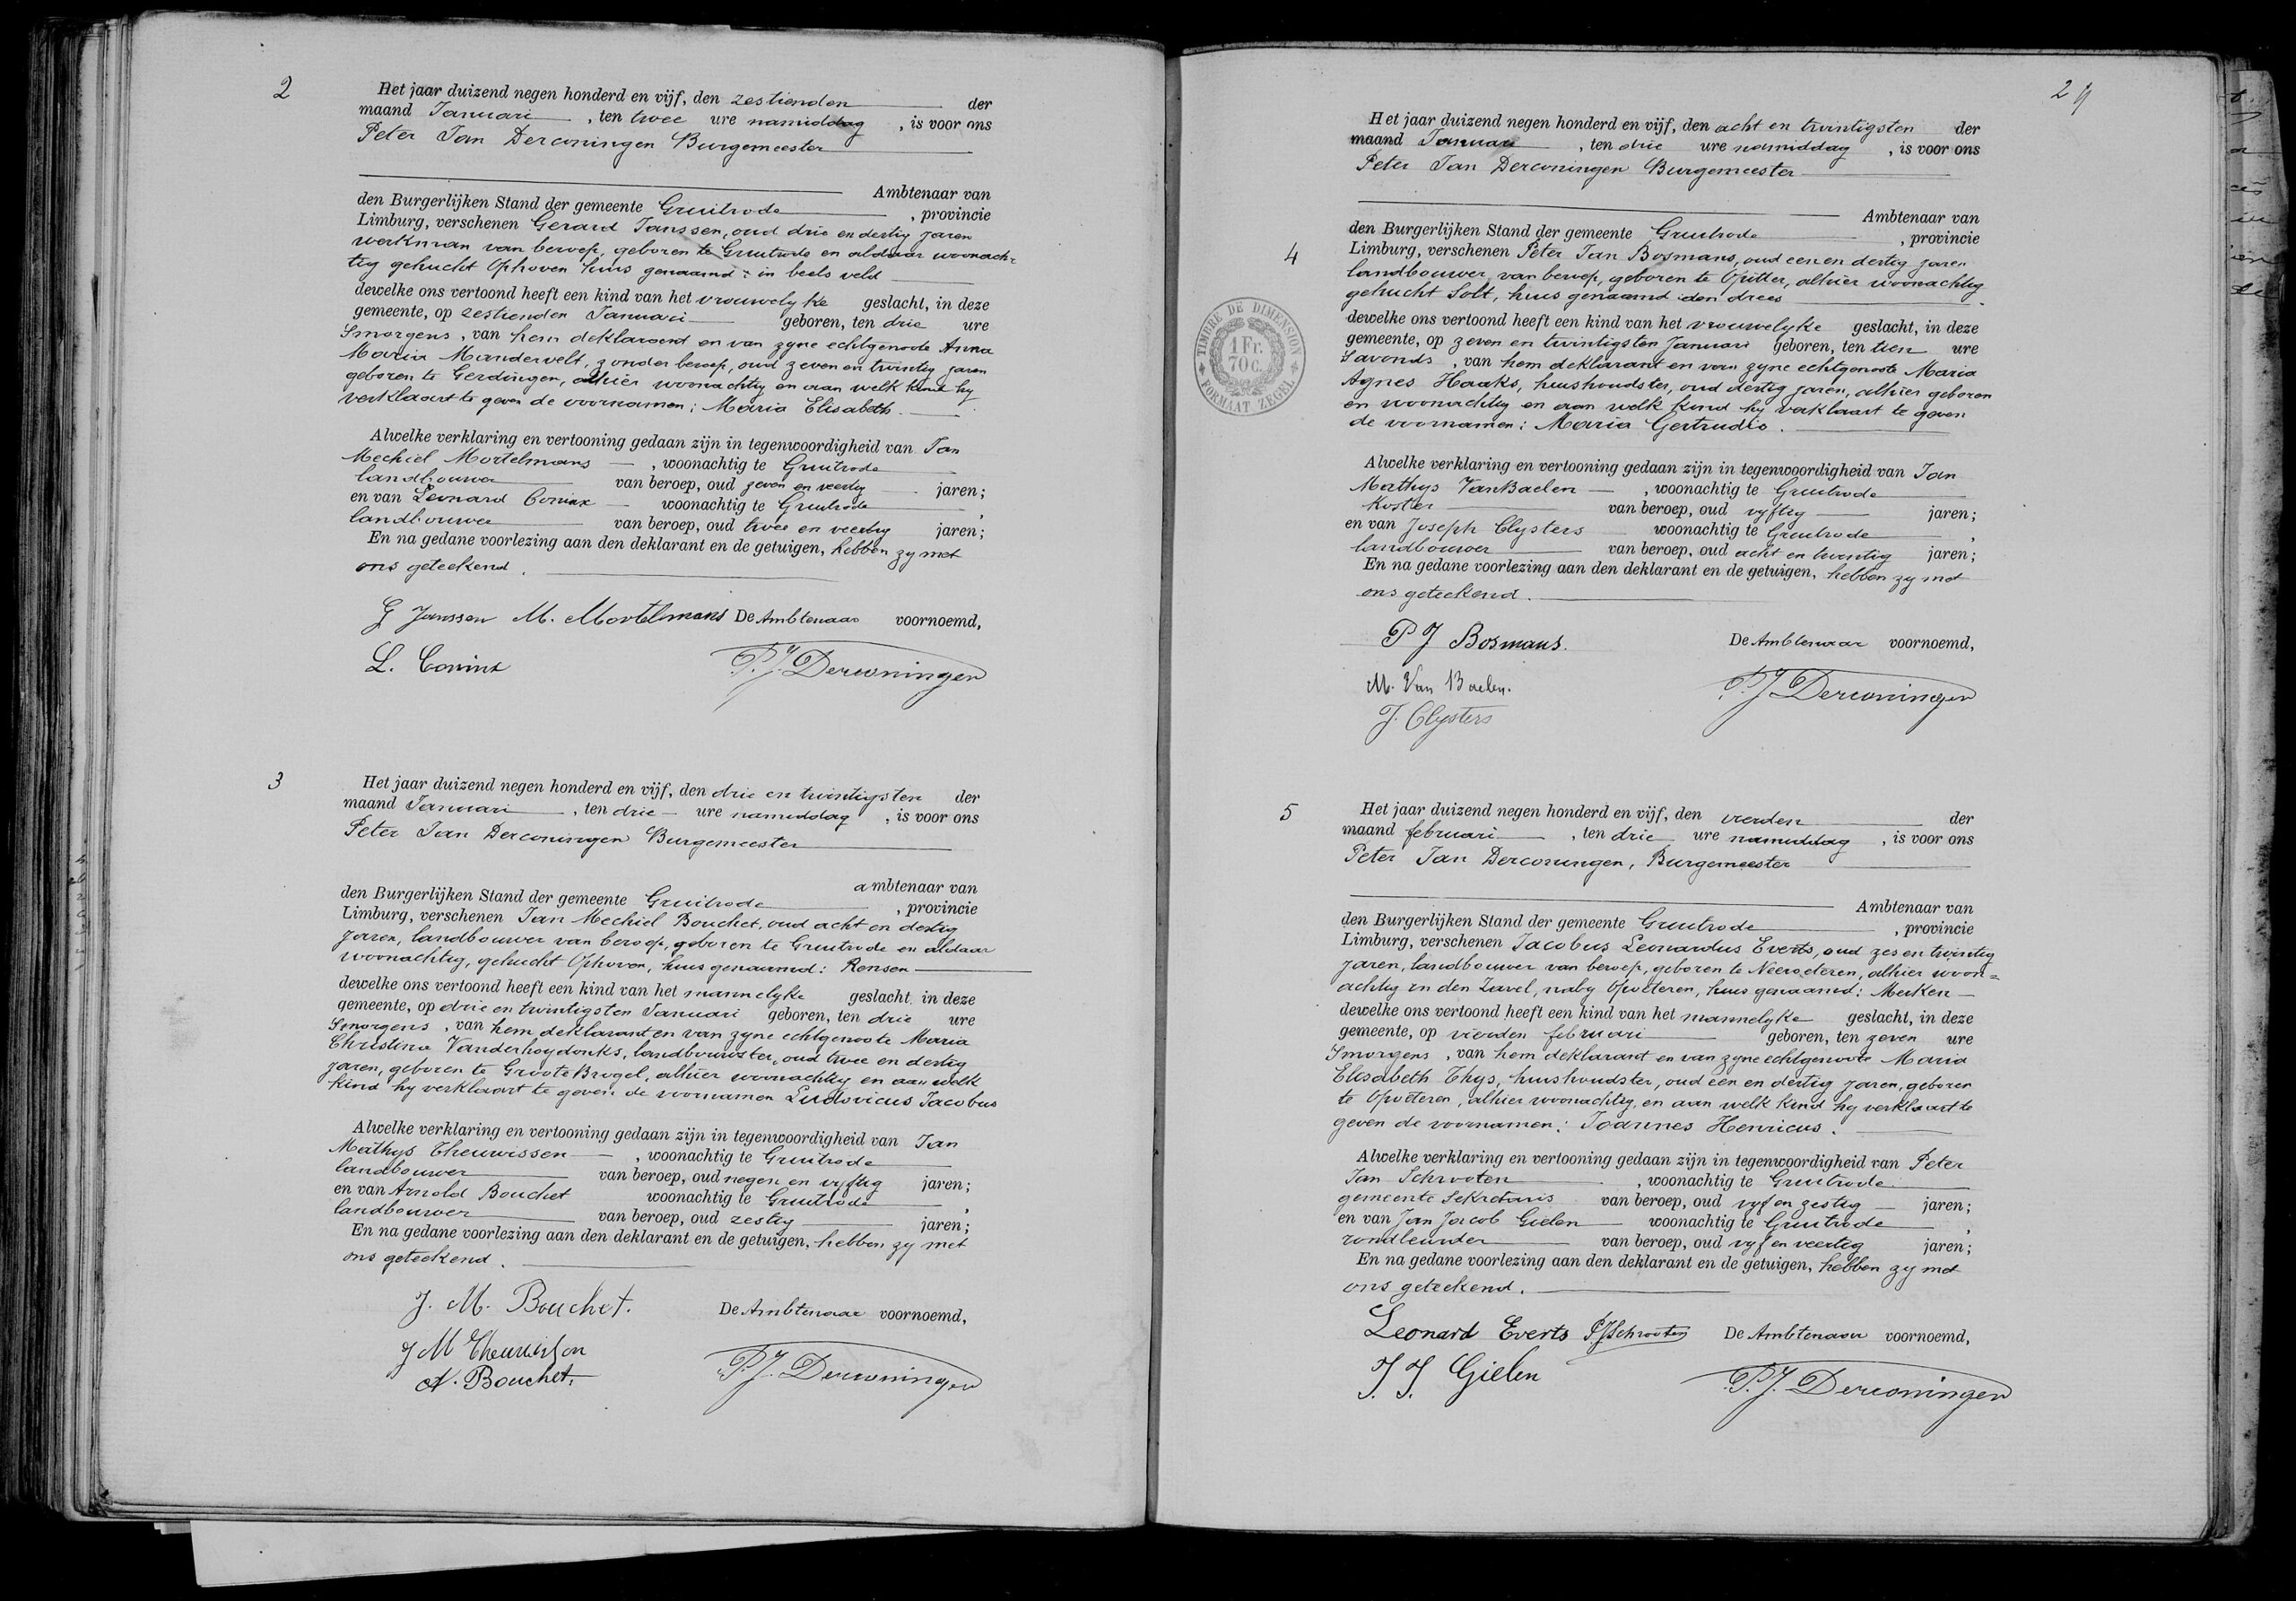 2
Het jaar duizend negen honderd en vijf, den zestienden der
maand Januari, ten twee ure namiddag, is voor ons
Peter Jan Derconingen Burgemeester
Ambtenaar van
den Burgerlijken Stand der gemeente Gruitrode, provincie
Limburg, verschenen Gerard Janssen, oud drie en dertig jaren
werkman van beroep, geboren te Gruitrode en aldaar woonach=
tig gehucht Ophoven huis genaamd: in beels veld
dewelke ons vertoond heeft een kind van het vrouwelyke geslacht, in deze
gemeente, op zestienden Januari geboren, ten drie ure
Smorgens, van hem deklarant en van zyne echtgenoote Anna
Maria Mandervelt, zonder beroep, oud zeven en twintig jaren
geboren te Gerdingen, alhier woonachtig en aan welk kind hy
verklaart te geven de voornamen: Maria Elisabeth.
Alwelke verklaring en vertooning gedaan zijn in tegenwoordigheid van Jan
Mechiel Mortelmans, woonachtig te Gruitrode
landbouwer van beroep, oud zeven en veertig jaren;
en van Leonard Coninx woonachtig te Gruitrode,
landbouwer van beroep, oud twee en veertig jaren;
En na gedane voorlezing aan den deklarant en de getuigen, hebben zy met
ons geteekend.
G Janssen M. Mortelmans De Ambtenaar voornoemd,
L. Coninx P.J. Derconingen
3
Het jaar duizend negen honderd en vijf, den drie en twintigsten der
maand Januari, ten drie ure namiddag, is voor ons
Peter Jan Derconingen Burgemeester
ambtenaar van
den Burgerlijken Stand der gemeente Gruitrode, provincie
Limburg, verschenen Jan Mechiel Bouchet, oud acht en dertig
jaren, landbouwer van beroep, geboren te Gruitrode en aldaar
woonachtig, gehucht Ophoven, huis genaamd: Rensen
dewelke ons vertoond heeft een kind van het mannelyke geslacht, in deze
gemeente, op drie en twintigsten Januari geboren, ten drie ure
Smorgens, van hem deklarant en van zyne echtgenoote Maria
Christina Vanderhoydonks, landbouwster, oud twee en dertig
jaren, geboren te Groote Brogel, alhier woonachtig en aan welk
kind hy verklaart te geven de voornamen Ludovicus Jacobus
Alwelke verklaring en vertooning gedaan zijn in tegenwoordigheid van Jan
Mathys Theuwissen, woonachtig te Gruitrode
landbouwer van beroep, oud negen en vyftig jaren;
en van Arnold Bouchet woonachtig te Gruitrode,
landbouwer van beroep, oud zestig jaren;
En na gedane voorlezing aan den deklarant en de getuigen, hebben zy met
ons geteekend.
J. M. Bouchet. De Ambtenaar voornoemd,
J M Theuwissen
A. Bouchet. P.J. Derconingen
29
Het jaar duizend negen honderd en vijf, den acht en twintigsten der
maand Januari, ten drie ure namiddag, is voor ons
Peter Jan Derconingen Burgemeester
Ambtenaar van
den Burgerlijken Stand der gemeente Gruitrode, provincie
4
Limburg, verschenen Peter Jan Bosmans, oud een en dertig jaren
landbouwer van beroep, geboren te Opitter, alhier woonachtig
gehucht Solt, huis genaamd den drees
TIMBRE DE DIMENSION
1 Fr.
70 C.
FORMAAT ZEGEL
dewelke ons vertoond heeft een kind van het vrouwelyke geslacht, in deze
gemeente, op zeven en twintigsten Januari geboren, ten tien ure
Savonds, van hem deklarant en van zyne echtgenoote Maria
Agnes Haaks, huishoudster, oud dertig jaren, alhier geboren
en woonachtig en aan welk kind hy verklaart te geven
de voornamen: Maria Gertrudis.
Alwelke verklaring en vertooning gedaan zijn in tegenwoordigheid van Jan
Mathys VanBaelen, woonachtig te Gruitrode
Koster van beroep, oud vyftig jaren;
en van Joseph Clysters woonachtig te Gruitrode,
landbouwer van beroep, oud acht en twintig jaren;
En na gedane voorlezing aan den deklarant en de getuigen, hebben zy met
ons geteekend.
P J Bosmans. De Ambtenaar voornoemd,
M. Van Baelen. P.J. Derconingen
J. Clysters
5
Het jaar duizend negen honderd en vijf, den vierden der
maand februari, ten drie ure namiddag, is voor ons
Peter Jan Derconingen, Burgemeester
Ambtenaar van
den Burgerlijken Stand der gemeente Gruitrode, provincie
Limburg, verschenen Jacobus Leonardus Everts, oud zes en twintig
jaren, landbouwer van beroep, geboren te Neeroeteren, alhier woon=
achtig in den Zavel, naby Opoeteren, huis genaamd: Meken
dewelke ons vertoond heeft een kind van het mannelyke geslacht, in deze
gemeente, op vierden februari geboren, ten zeven ure
Smorgens, van hem deklarant en van zyne echtgenoote Maria
Elisabeth Thys, huishoudster, oud een en dertig jaren, geboren
te Opoeteren, alhier woonachtig, en aan welk kind hy verklaart te
geven de voornamen: Joannes Henricus.
Alwelke verklaring en vertooning gedaan zijn in tegenwoordigheid van Peter
Jan Schrooten, woonachtig te Gruitrode
gemeente Sekretaris van beroep, oud vyf en zestig jaren;
en van Jan Jacob Gielen woonachtig te Gruitrode,
rondleurder van beroep, oud vyf en veertig jaren;
En na gedane voorlezing aan den deklarant en de getuigen, hebben zy met
ons geteekend.
Leonard Everts PJSchrooten De Ambtenaar voornoemd,
J. J. Gielen P.J. Derconingen